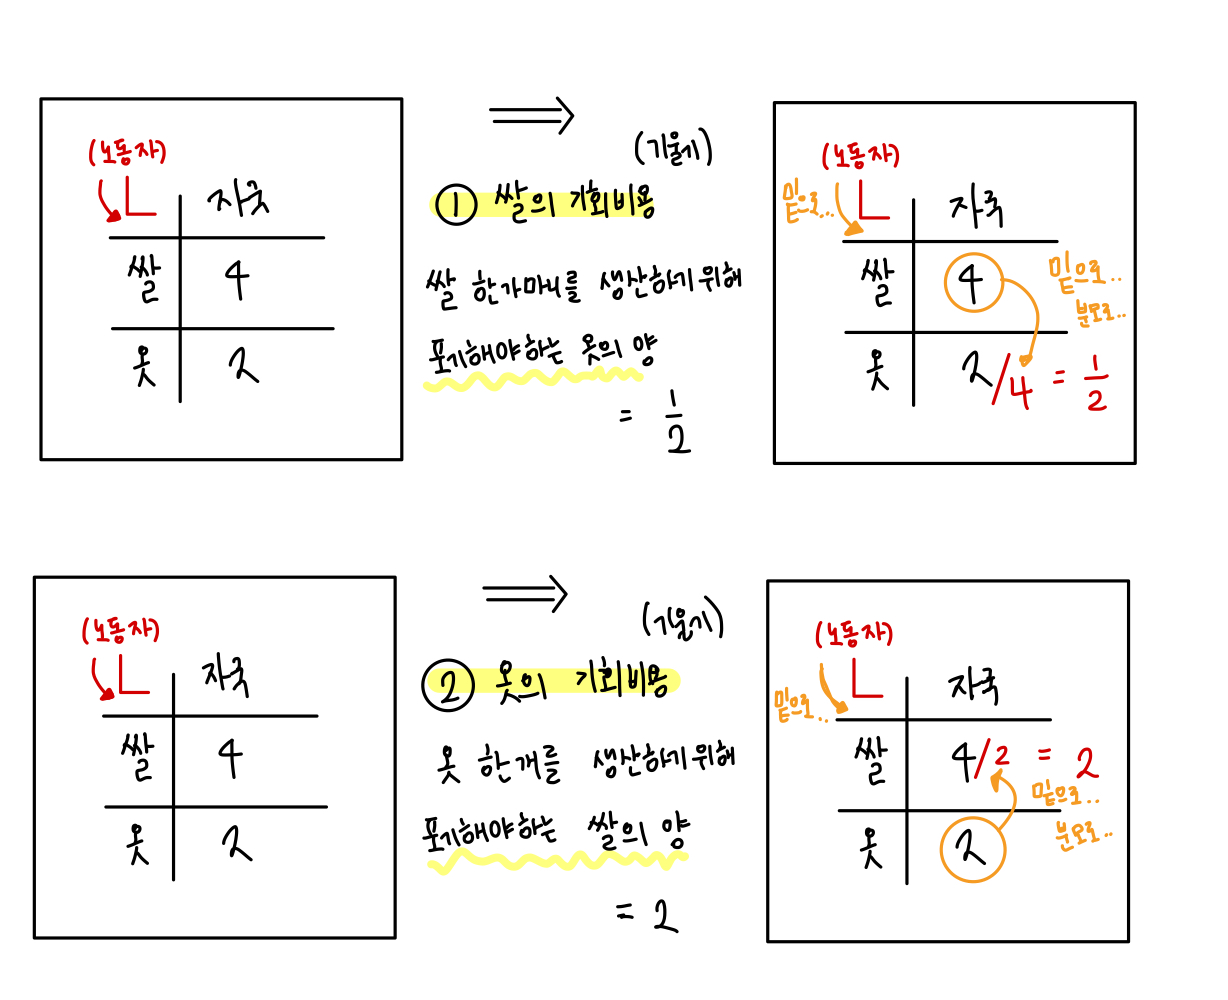 (노동자)
L 자국
쌀 4
옷 2
⇒
(기울기)
① 쌀의 기회비용
쌀 한가마니를 생산하기 위해
포기해야하는 옷의 양
= 1/2
(노동자)
밑으로...
L 자국
쌀 4 밑으로..
분모로..
옷 2/4 = 1/2
(노동자)
L 자국
쌀 4
옷 2
⇒
(기울기)
② 옷의 기회비용
옷 한개를 생산하기 위해
포기해야하는 쌀의 양
= 2
(노동자)
밑으로..
L 자국
쌀 4/2 = 2
밑으로..
분모로..
옷 2